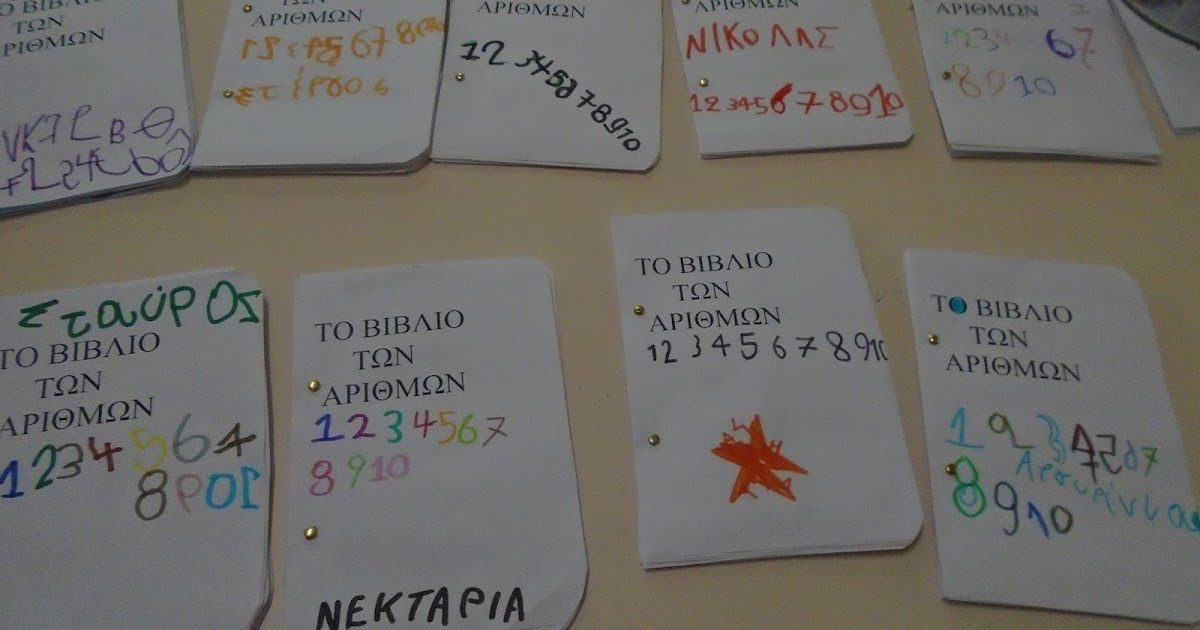 ΤΟ ΒΙΒΛΙΟ
ΤΩΝ
ΑΡΙΘΜΩΝ
ΤΩΝ
ΑΡΙΘΜΩΝ
67 8
ΑΡΙΘΜΩΝ
12 345
78910
ΑΡΙΘΜΩΝ
ΝΙΚΟΛΑΣ
12 345 6 7 8910
ΑΡΙΘΜΩΝ
123 67
8910
Σταύρος
ΤΟ ΒΙΒΛΙΟ
ΤΩΝ
ΑΡΙΘΜΩΝ
1234567
8
ΤΟ ΒΙΒΛΙΟ
ΤΩΝ
ΑΡΙΘΜΩΝ
1234567
8910
ΝΕΚΤΑΡΙΑ
ΤΟ ΒΙΒΛΙΟ
ΤΩΝ
ΑΡΙΘΜΩΝ
12 3 4 5 6 7 8 910
ΤΟ ΒΙΒΛΙΟ
ΤΩΝ
ΑΡΙΘΜΩΝ
1 2 3 4567
8910